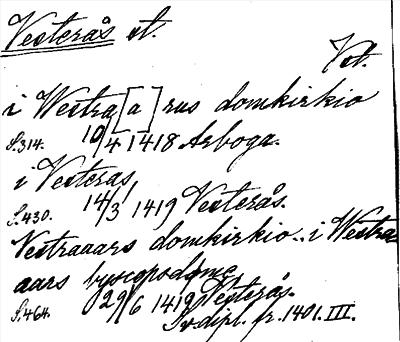 Vesterås st.
Vst.
i Westra[a]rus domkirkio
S.314. 10/4 1418 Arboga.
i Vesteras
S.430. 14/3 1419 Vesterås.
Vestraaars domkirkio.. i Westra-
aars byscopsdøme
S.464. 29/6 1419 Vesterås.
Sv. dipl. fr. 1401. III.